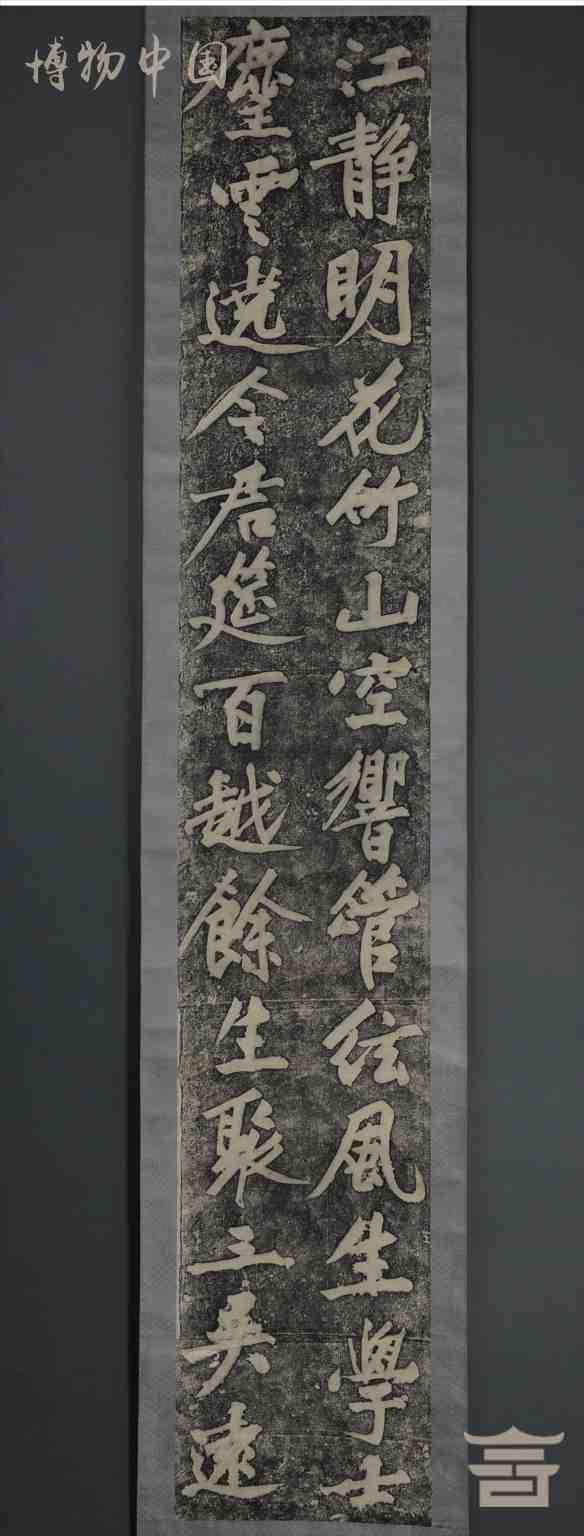 博物中国
江静明花竹山空響管絃風生學士
麈雲遶令君筵百越餘生聚三吴遠